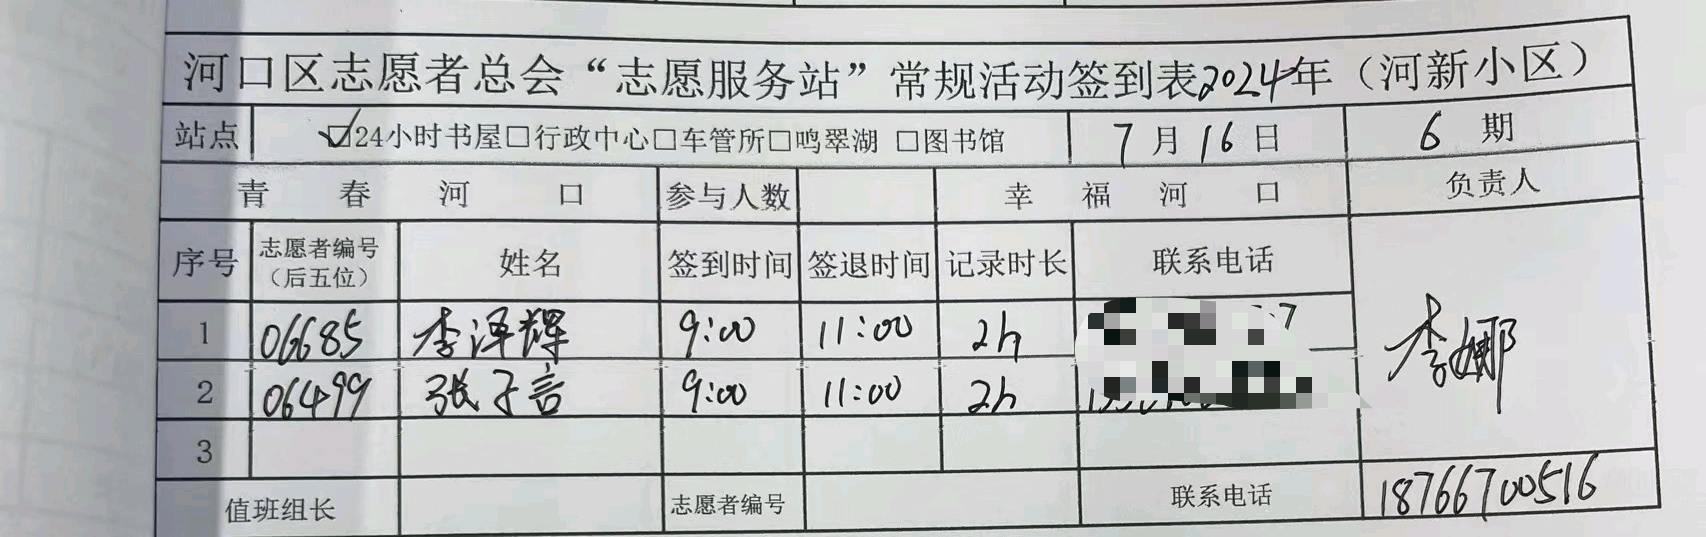 河口区志愿者总会“志愿服务站”常规活动签到表2024年（河新小区）
站点 ☑24小时书屋□行政中心□车管所□鸣翠湖 □图书馆 7月16日 6期
青春河口 参与人数 幸福河口 负责人
序号 志愿者编号（后五位） 姓名 签到时间 签退时间 记录时长 联系电话
1 06685 李泽辉 9:00 11:00 2h
2 06499 张子言 9:00 11:00 2h
李娜
3
值班组长 志愿者编号 联系电话 18766700516